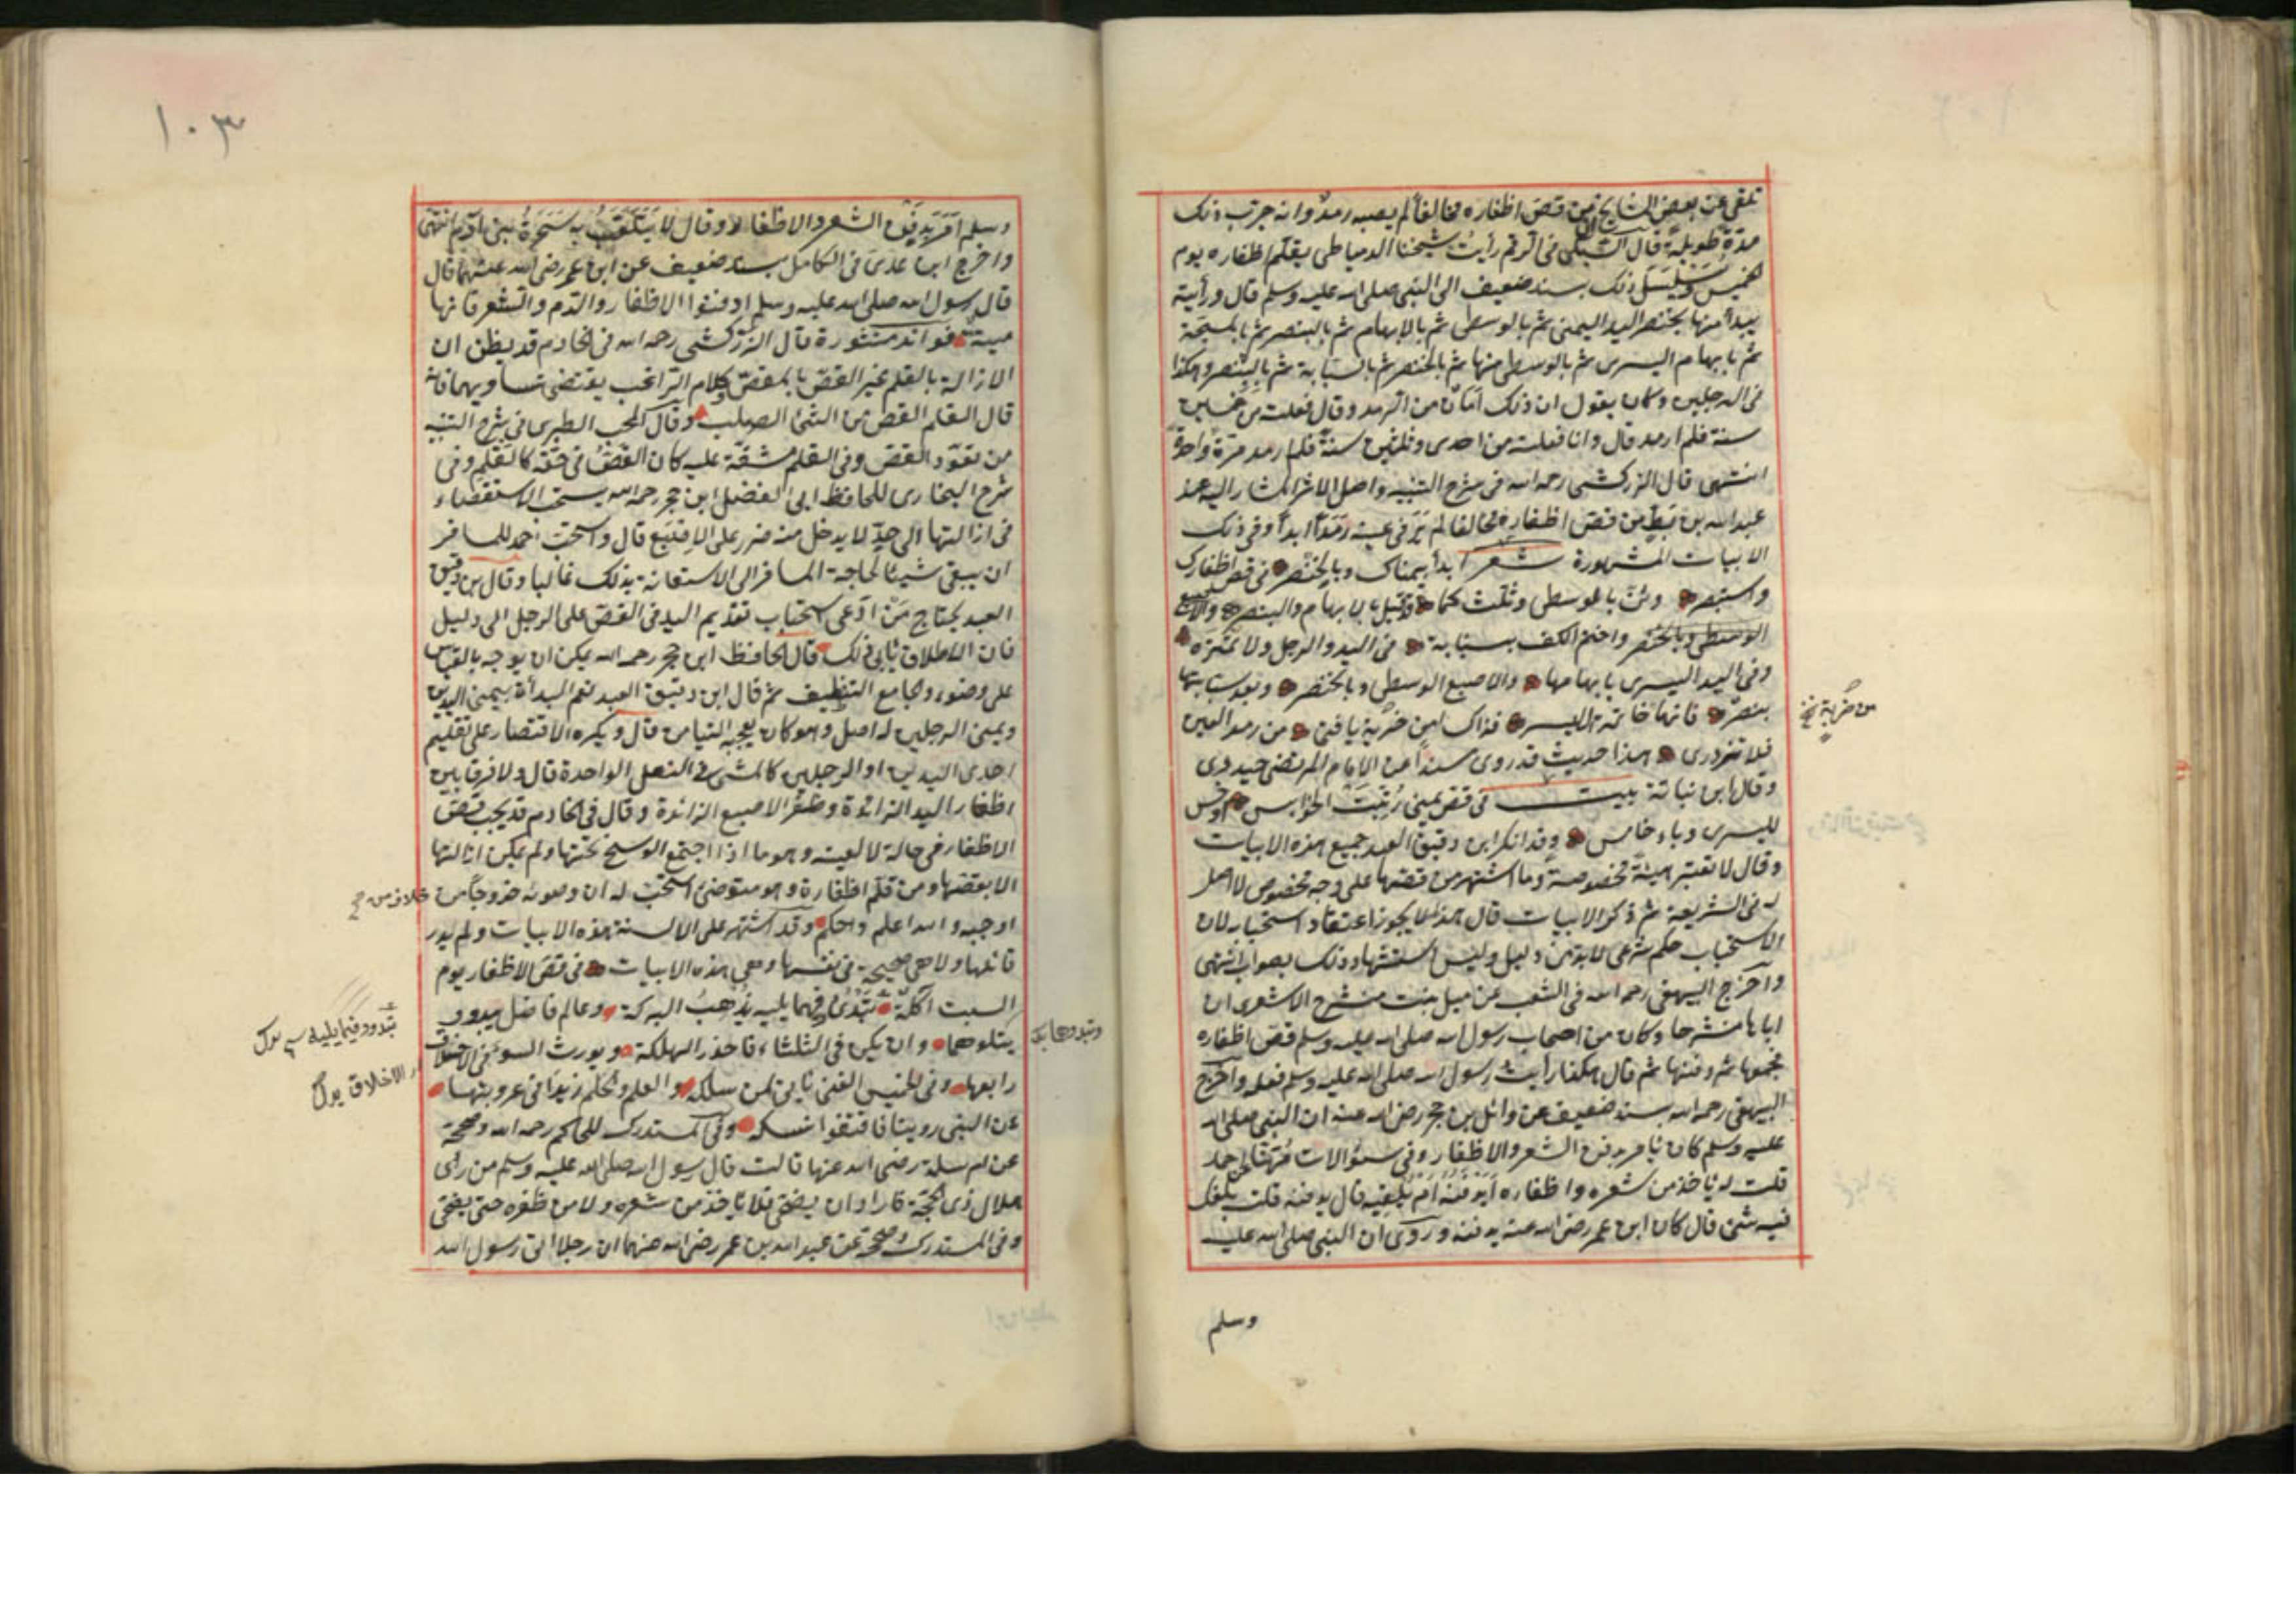 تلقى عن بعض المشايخ من قص اظفاره مخالفا لم يصبه رمد وانه جرب ذلك
مدة طويلة قال السبكى فى الترقيم رأيت شيخنا الدمياطى يقلم اظفاره يوم
الخميس ويسلسل ذلك بسند ضعيف الى النبى صلى الله عليه وسلم قال ورأيته
يبدأ منها بخنصر اليد اليمنى ثم بالوسطى ثم بالابهام ثم بالبنصر ثم بالمسبحة
ثم بابهام اليسرى ثم بالوسطى منها ثم بالخنصر ثم بالسبابة ثم بالبنصر وهكذا
فى الرجلين وكان يقول ان ذلك امان من الرمد وقال فعلت من خمسين
سنة فلم ارمد قال وانا فعلته من احدى وثلثين سنة فلم ارمد مرة واحدة
انتهى قال الزركشى رحمه الله فى شرح التنبيه واصل الاثر المشار اليه عند
عبد الله بن بطة من قص اظفاره مخالفا لم ير فى عينيه رمدا ابدا وفى ذلك
الابيات المشهورة شعر ابدأ بيمناك وبالخنصر فى قص اظفارك
واستبصر وثن بالوسطى وثلث كما قد قيل بالابهام والبنصر والاصبع
الوسطى وبالخنصر واختم الكف بسبابة فى اليد والرجل ولا تمتره
وفى اليد اليسرى بابهامها والاصبع الوسطى وبالخنصر وبعد سبابتها
بنصر فانها خاتمة الايسر فذاك امن حزته يا فتى من رمد العين
فلا تزدرى هذا حديث قد روى مسندا عن الامام المرتضى حيدرى
وقال ابن نباتة بيت فى قص يمنى رتبت خوابس اوخس
لليسرى وباء خامس وقد انكر ابن دقيق العيد جميع هذه الابيات
وقال لا تعتبر هيئة مخصوصة وما اشتهر من قصها على وجه مخصوص لا اصل
له فى الشريعة ثم ذكر الابيات قال هذا لا يجوز اعتقاد استحبابه لان
الاستحباب حكم شرعى لا بد من دليل وليس استشهاد ذلك بصواب انتهى
واخرج البيهقى رحمه الله فى الشعب عن ميل بنت مشرح الاشعرى ان
اباها مشرحا وكان من اصحاب رسول الله صلى الله عليه وسلم قص اظفاره
فجمعها ثم دفنها ثم قال هكذا رأيت رسول الله صلى الله عليه وسلم فعله واخرج
البيهقى رحمه الله بسند ضعيف عن وائل بن حجر رضى الله عنه ان النبى صلى الله
عليه وسلم كان يأمر بدفن الشعر والاظفار وفى سئوالات مهنا لاحمد
قلت له يأخذ من شعره واظفاره أيدفنه ام يلقيه قال يدفنه قلت بلغك
فيه شىء قال كان ابن عمر رضى الله عنه يدفنه وروى ان النبى صلى الله عليه
وسلم
١٠٣
وسلم امر بدفن الشعر والاظفار وقال لا يتلعب به سحرة بنى آدم انتهى
واخرج ابن عدى فى الكامل بسند ضعيف عن ابن عمر رضى الله عنهما قال
قال رسول الله صلى الله عليه وسلم ادفنوا الاظفار والدم والشعر فانها
ميتة فوائد منثورة قال الزركشى رحمه الله فى الخادم قد يظن ان
الازالة بالقلم غير القص بالمقص وكلام الراغب يقتضى تساويهما فانه
قال القلم القص من الشئ الصلب وقال المحب الطبرى فى شرح التنبيه
من تعود القص وفى القلم مشقة عليه كان القص فى حقه كالقلم وفى
شرح البخارى للحافظ ابى الفضل ابن حجر رحمه الله يستحب الاستقصاء
فى ازالتها الى حد لا يدخل منه ضرر على الاصبع قال واستحب احمد للمسافر
ان يبقى شيئا لحاجة المسافر الى الاستعانة بذلك غالبا وقال ابن دقيق
العيد يحتاج من ادعى استحباب تقديم اليد فى القص على الرجل الى دليل
فان الاطلاق يأبى ذلك قال الحافظ ابن حجر رحمه الله يمكن ان يوجه بالقياس
على وضوء والجامع التنظيف ثم قال ابن دقيق العيد نعم البدأة بيمنى اليدين
ويمنى الرجلين له اصل وهو كان يعجبه التيامن قال ويكره الاقتصار على تقليم
احدى اليدين او الرجلين كالمشى فى النعل الواحدة قال ولا فرق بين
اظفار اليد الزائدة وظفر الاصبع الزائدة وقال فى الخادم قد يجب قص
الاظفار فى حالة لا لعينه وهو ما اذا اجتمع الوسخ تحتها ولم يمكن ازالتها
الا بقصها ومن قلم اظفاره وهو متوضئ استحب له ان وضوئه خروجا من
خلاف من صح
اوجبه والله اعلم واحكم وقد اشتهر على الالسنة هذه الابيات ولم يدر
قائلها ولا هى صحيحة فى نفسها وهى هذه الابيات فى قص الاظفار يوم
السبت آكلة تبدو وفيما يليه يذهب البركة وعالم فاضل يبدو
يتلوهما وان يكن فى الثلثاء فاحذر الهلكة ويورث السوء فى الاخلاق
رابعها وفى الخميس الغنى يأتى لمن سلكه والعلم والحلم زيدا فى عروبتها
عن النبى روينا فاقتفوا نسكه وفى المستدرك للحاكم رحمه الله وصححه
عن ام سلمة رضى الله عنها قالت قال رسول الله صلى الله عليه وسلم من رأى
هلال ذى الحجة فاراد ان يضحى فلا يأخذ من شعره ولا من ظفره حتى يضحى
وفى المستدرك وصححه عن عبد الله بن عمر رضى الله عنهما ان رجلا اتى رسول الله